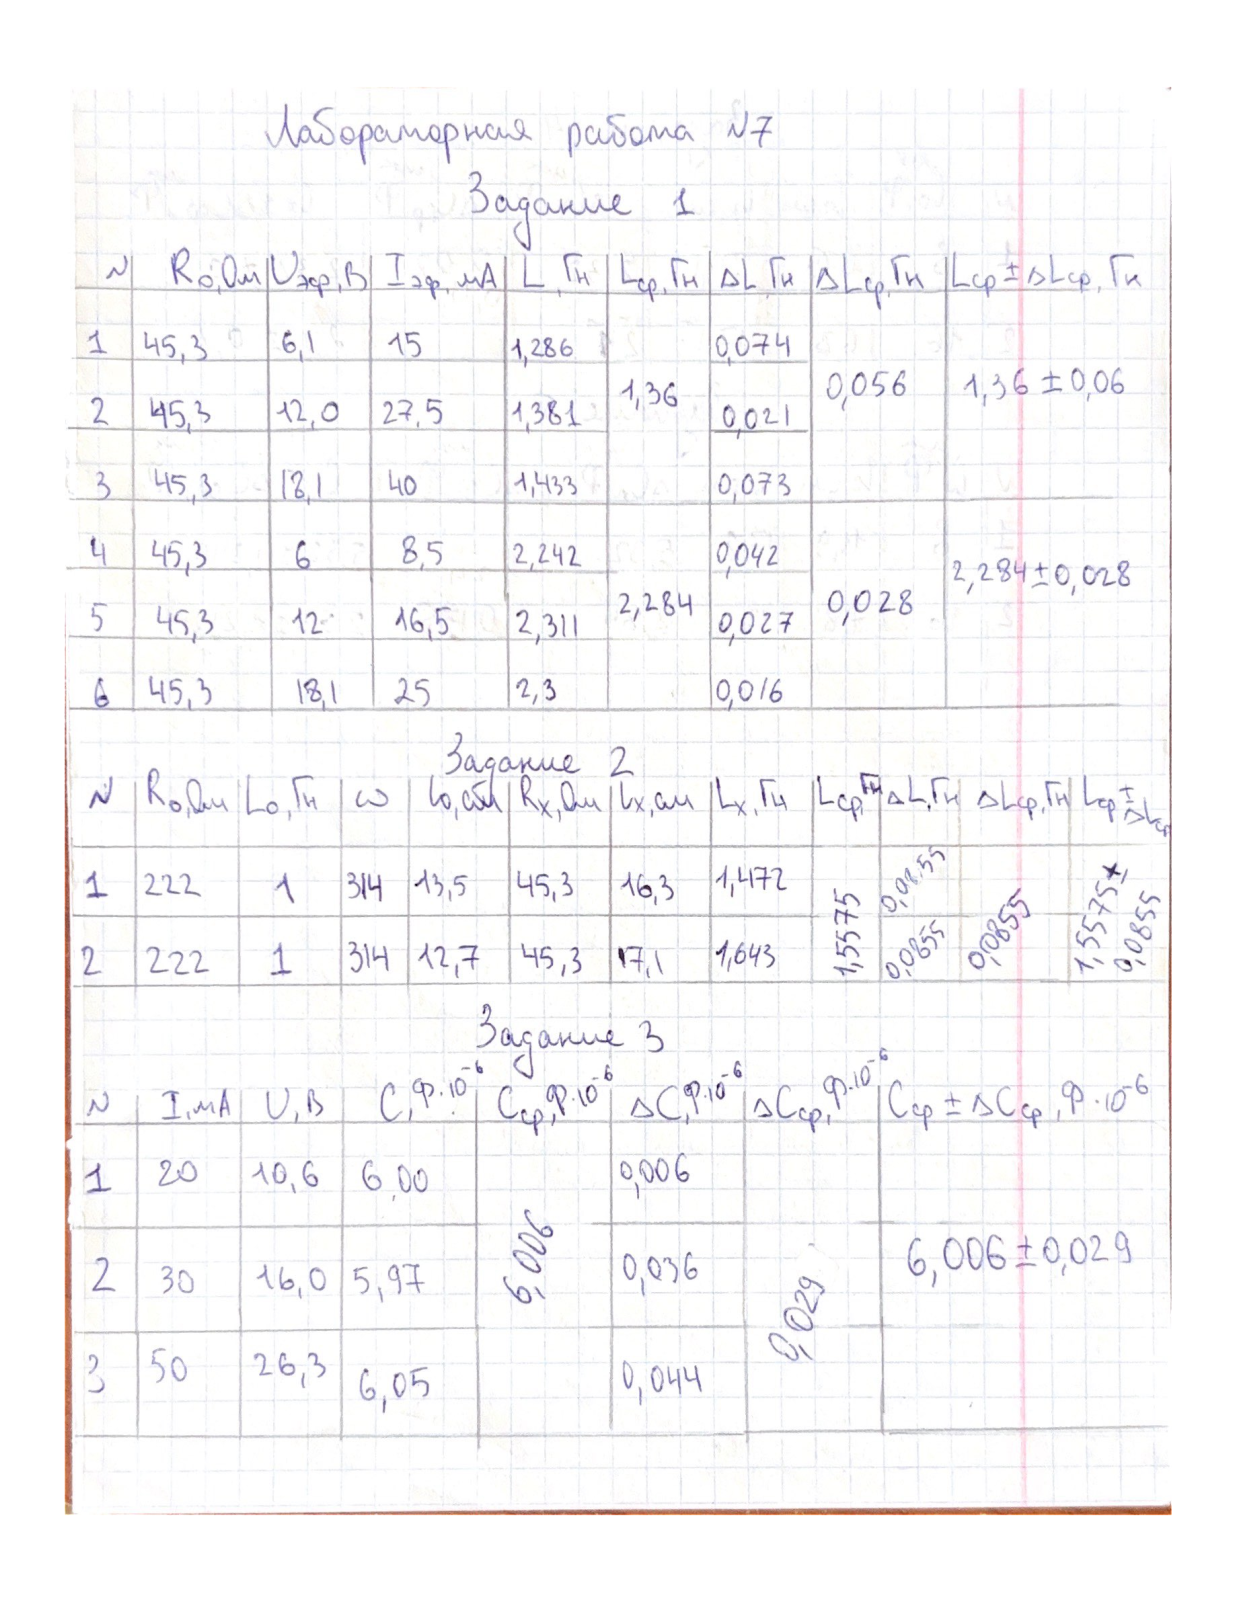 Лабораторная работа N7
Задание 1
N R₀,Ом Uэф,В Iэф,мА L,Гн Lср,Гн ΔL,Гн ΔLср,Гн Lср±ΔLср,Гн
1 45,3 6,1 15 1,286 0,074
1,36 0,056 1,36±0,06
2 45,3 12,0 27,5 1,381 0,021
3 45,3 18,1 40 1,433 0,073
4 45,3 6 8,5 2,242 0,042
2,284 0,028 2,284±0,028
5 45,3 12 16,5 2,311 0,027
6 45,3 18,1 25 2,3 0,016
Задание 2
N R₀,Ом L₀,Гн ω l₀,см Rₓ,Ом lₓ,см Lₓ,Гн Lср,Гн ΔL,Гн ΔLср,Гн Lср±ΔLср
1 222 1 314 13,5 45,3 16,3 1,472 1,5575 0,0855 0,0855 1,5575±0,0855
2 222 1 314 12,7 45,3 17,1 1,643 0,0855
Задание 3
N I,мА U,В C,Ф·10⁻⁶ Cср,Ф·10⁻⁶ ΔC,Ф·10⁻⁶ ΔCср,Ф·10⁻⁶ Cср±ΔCср,Ф·10⁻⁶
1 20 10,6 6,00 0,006
2 30 16,0 5,97 6,006 0,036 0,029 6,006±0,029
3 50 26,3 6,05 0,044